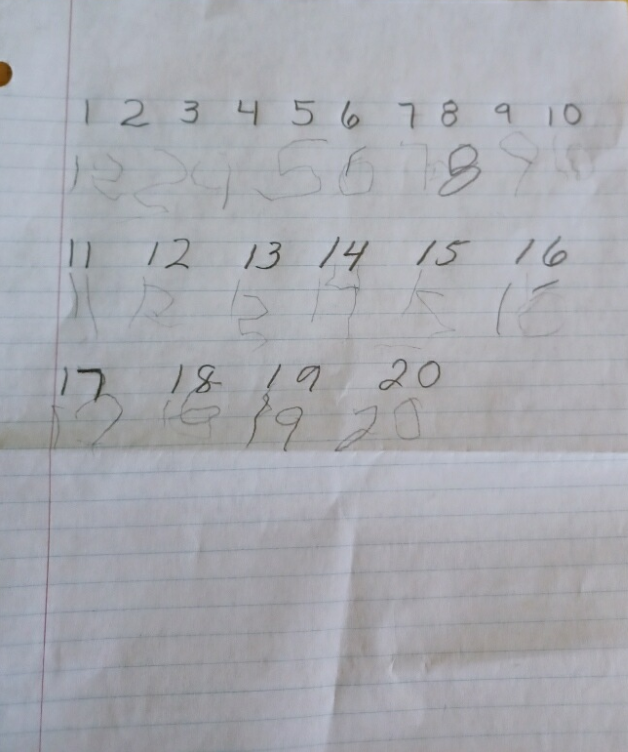 1 2 3 4 5 6 7 8 9 10
1 2 2 4 5 6 7 8 9
11 12 13 14 15 16
11 12 13 14 15 16
17 18 19 20
17 18 19 20